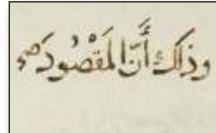 وذلك أَنَّ المَقْصُودَ